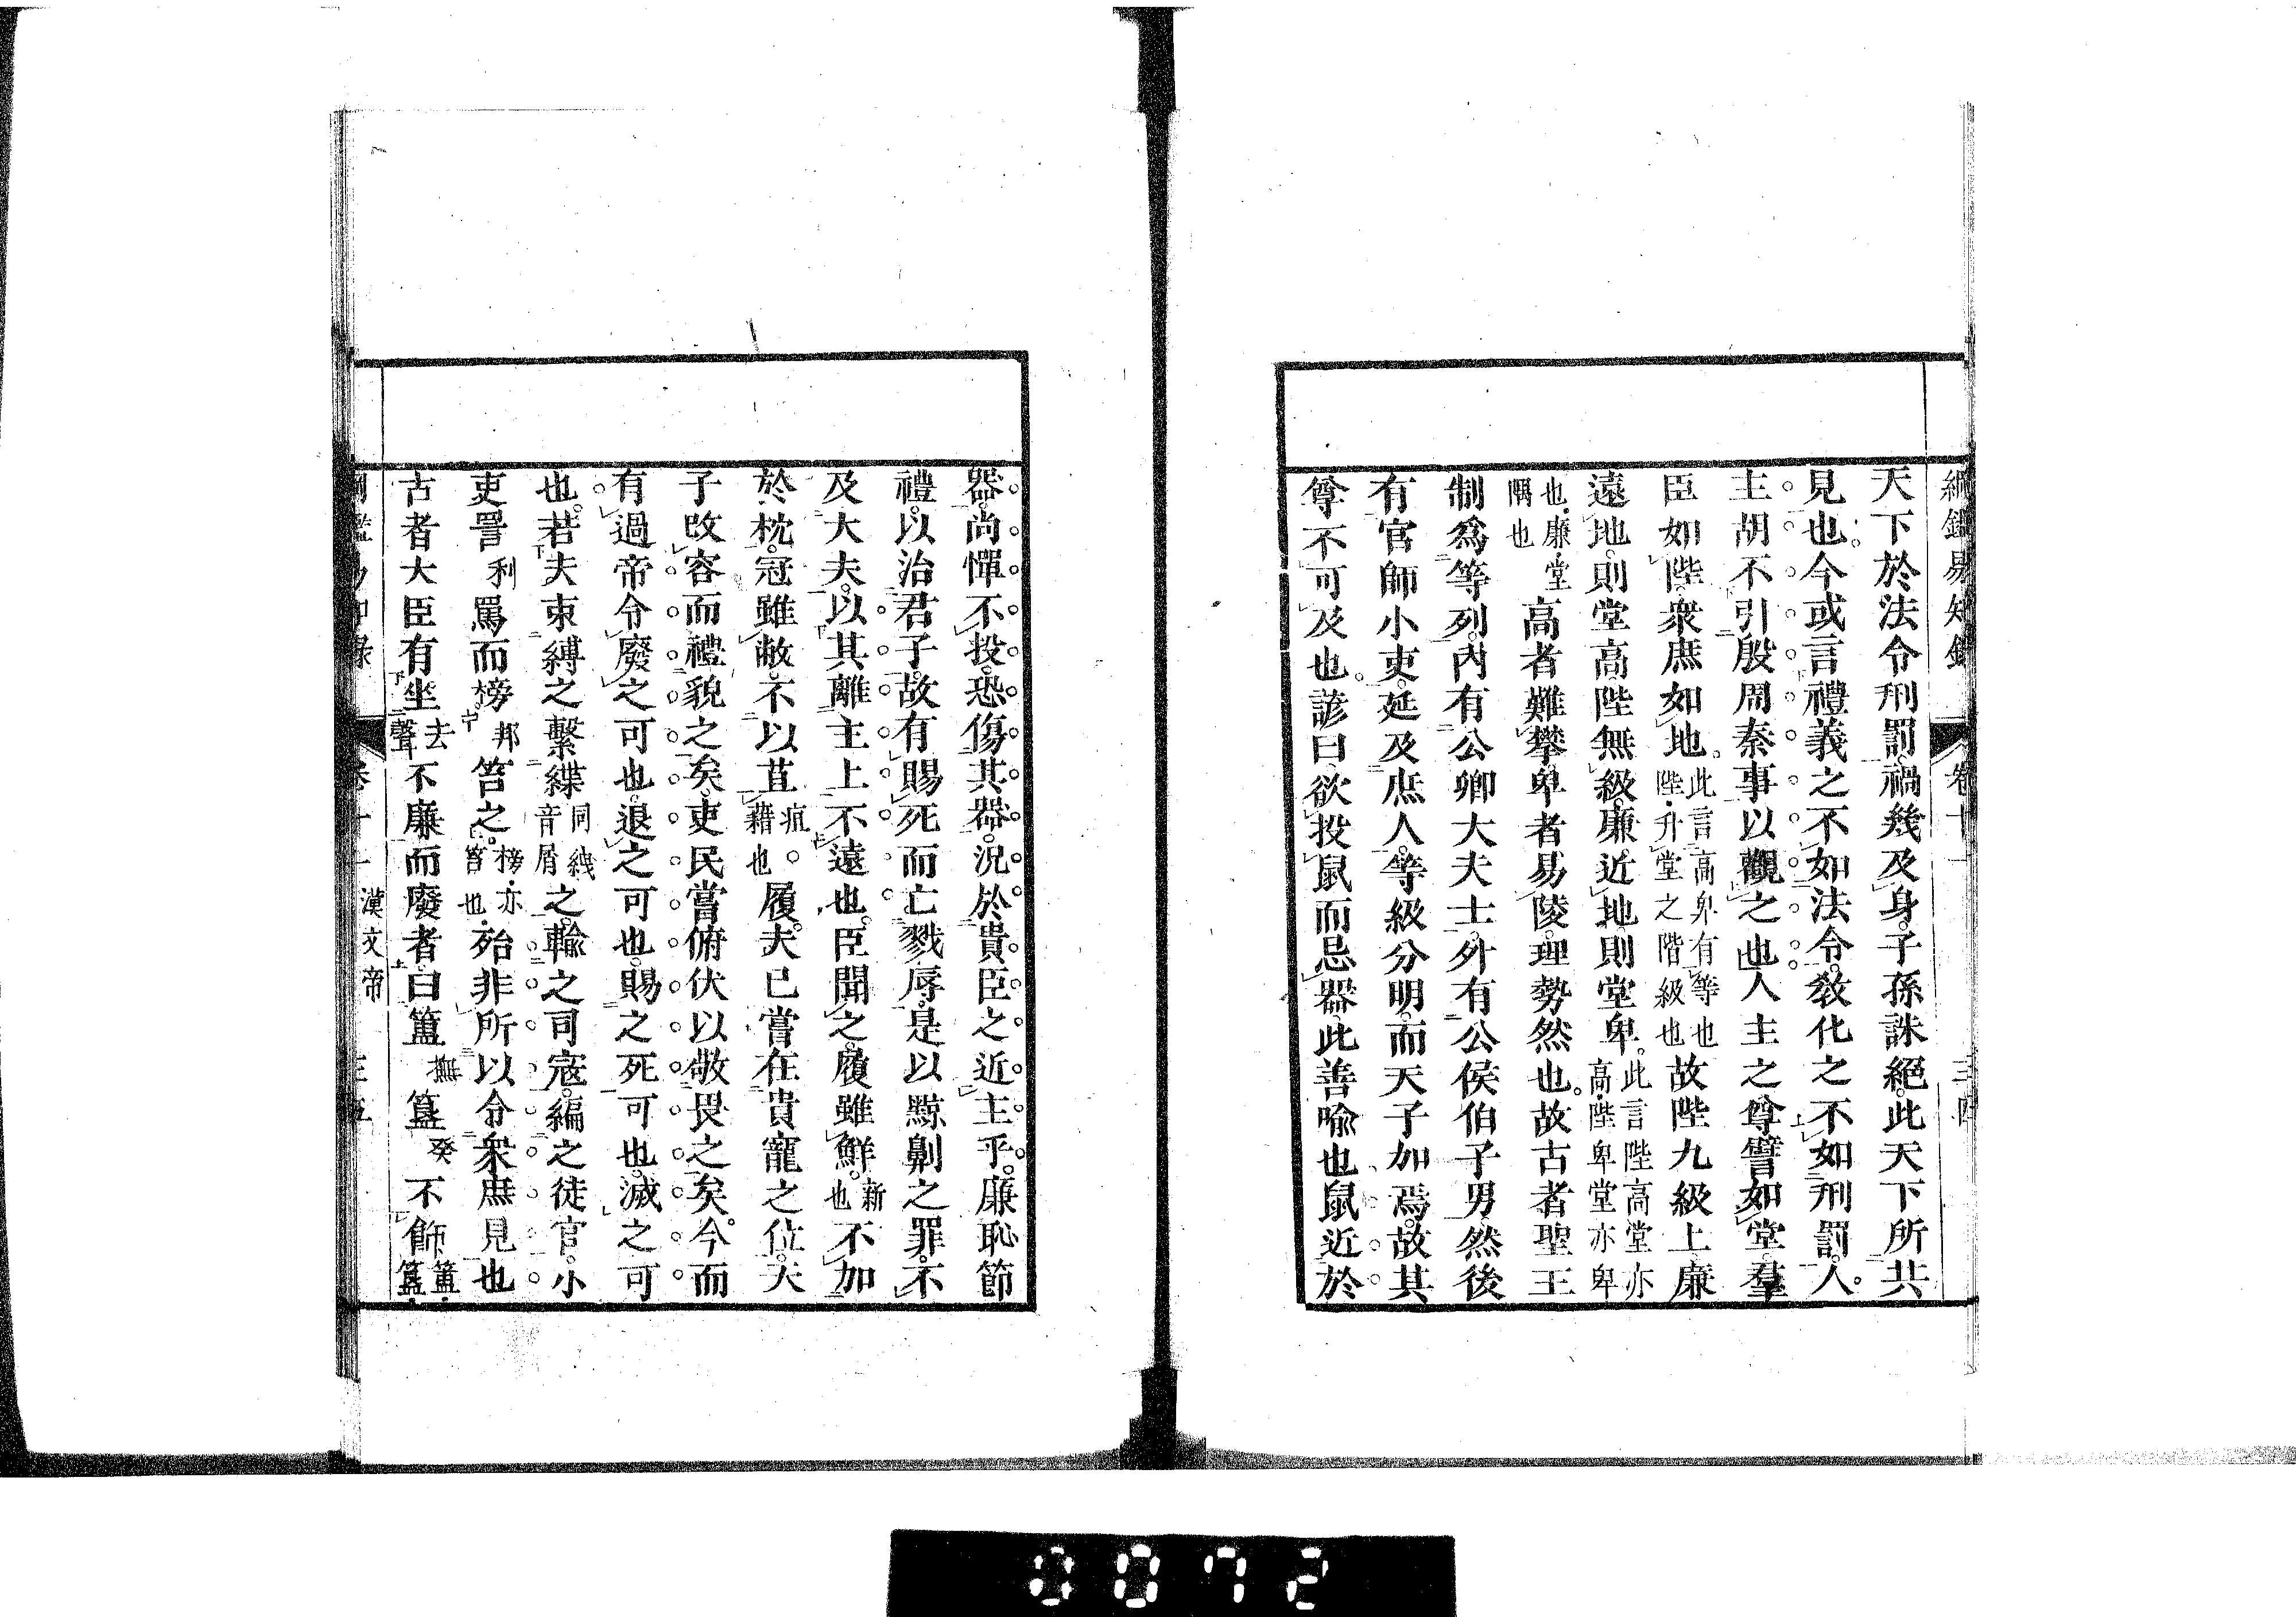 綱鑑易知錄 卷十一 三四
天下於法令刑罰。禍幾及身。子孫誅絕。此天下所共
見也。今或言禮義之不如法令。敎化之不如刑罰。人
主胡不引殷周秦事以觀之也人主之尊譬如堂。羣
臣如陛。衆庶如地。此言高卑有等也陛升堂之階級也故陛九級上廉
遠地。則堂高。陛無級。廉近地則堂卑。此言陛高堂亦高陛卑堂亦卑
也廉堂隅也高者難攀。卑者易陵。理勢然也。故古者聖王
制爲等列。內有公卿大夫士。外有公侯伯子男。然後
有官師小吏。延及庶人。等級分明。而天子加焉。故其
尊不可及也。諺曰欲投鼠而忌器。此善喩也鼠近於
器。尚憚不投。恐傷其器。況於貴臣之近主乎。廉恥節
禮。以治君子。故有賜死而亡戮辱。是以黥劓之罪。不
及大夫。以其離主上不遠也。臣聞之。履雖鮮。新也不加
於枕。冠雖敝。不以苴疽。藉也履。夫已嘗在貴寵之位。天
子改容而禮貌之矣。吏民嘗俯伏以敬畏之矣。今而
有過帝令廢之可也。退之可也。賜之死可也。滅之可
也。若夫束縛之繫緤同絏音屑之。輸之司寇。編之徒官。小
吏詈利罵而榜邦笞之。榜亦笞也殆非所以令衆庶見也
古者大臣有坐去聲不廉而廢者。曰簠撫簋癸不飾簠簋
卷十一 漢文帝 三五